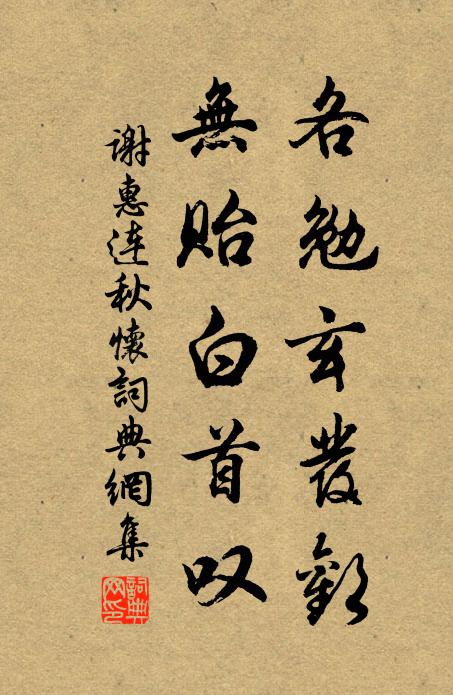 各勉玄髮歡
無貽白首叹
谢惠連秋懷詞典網集
詞典网印